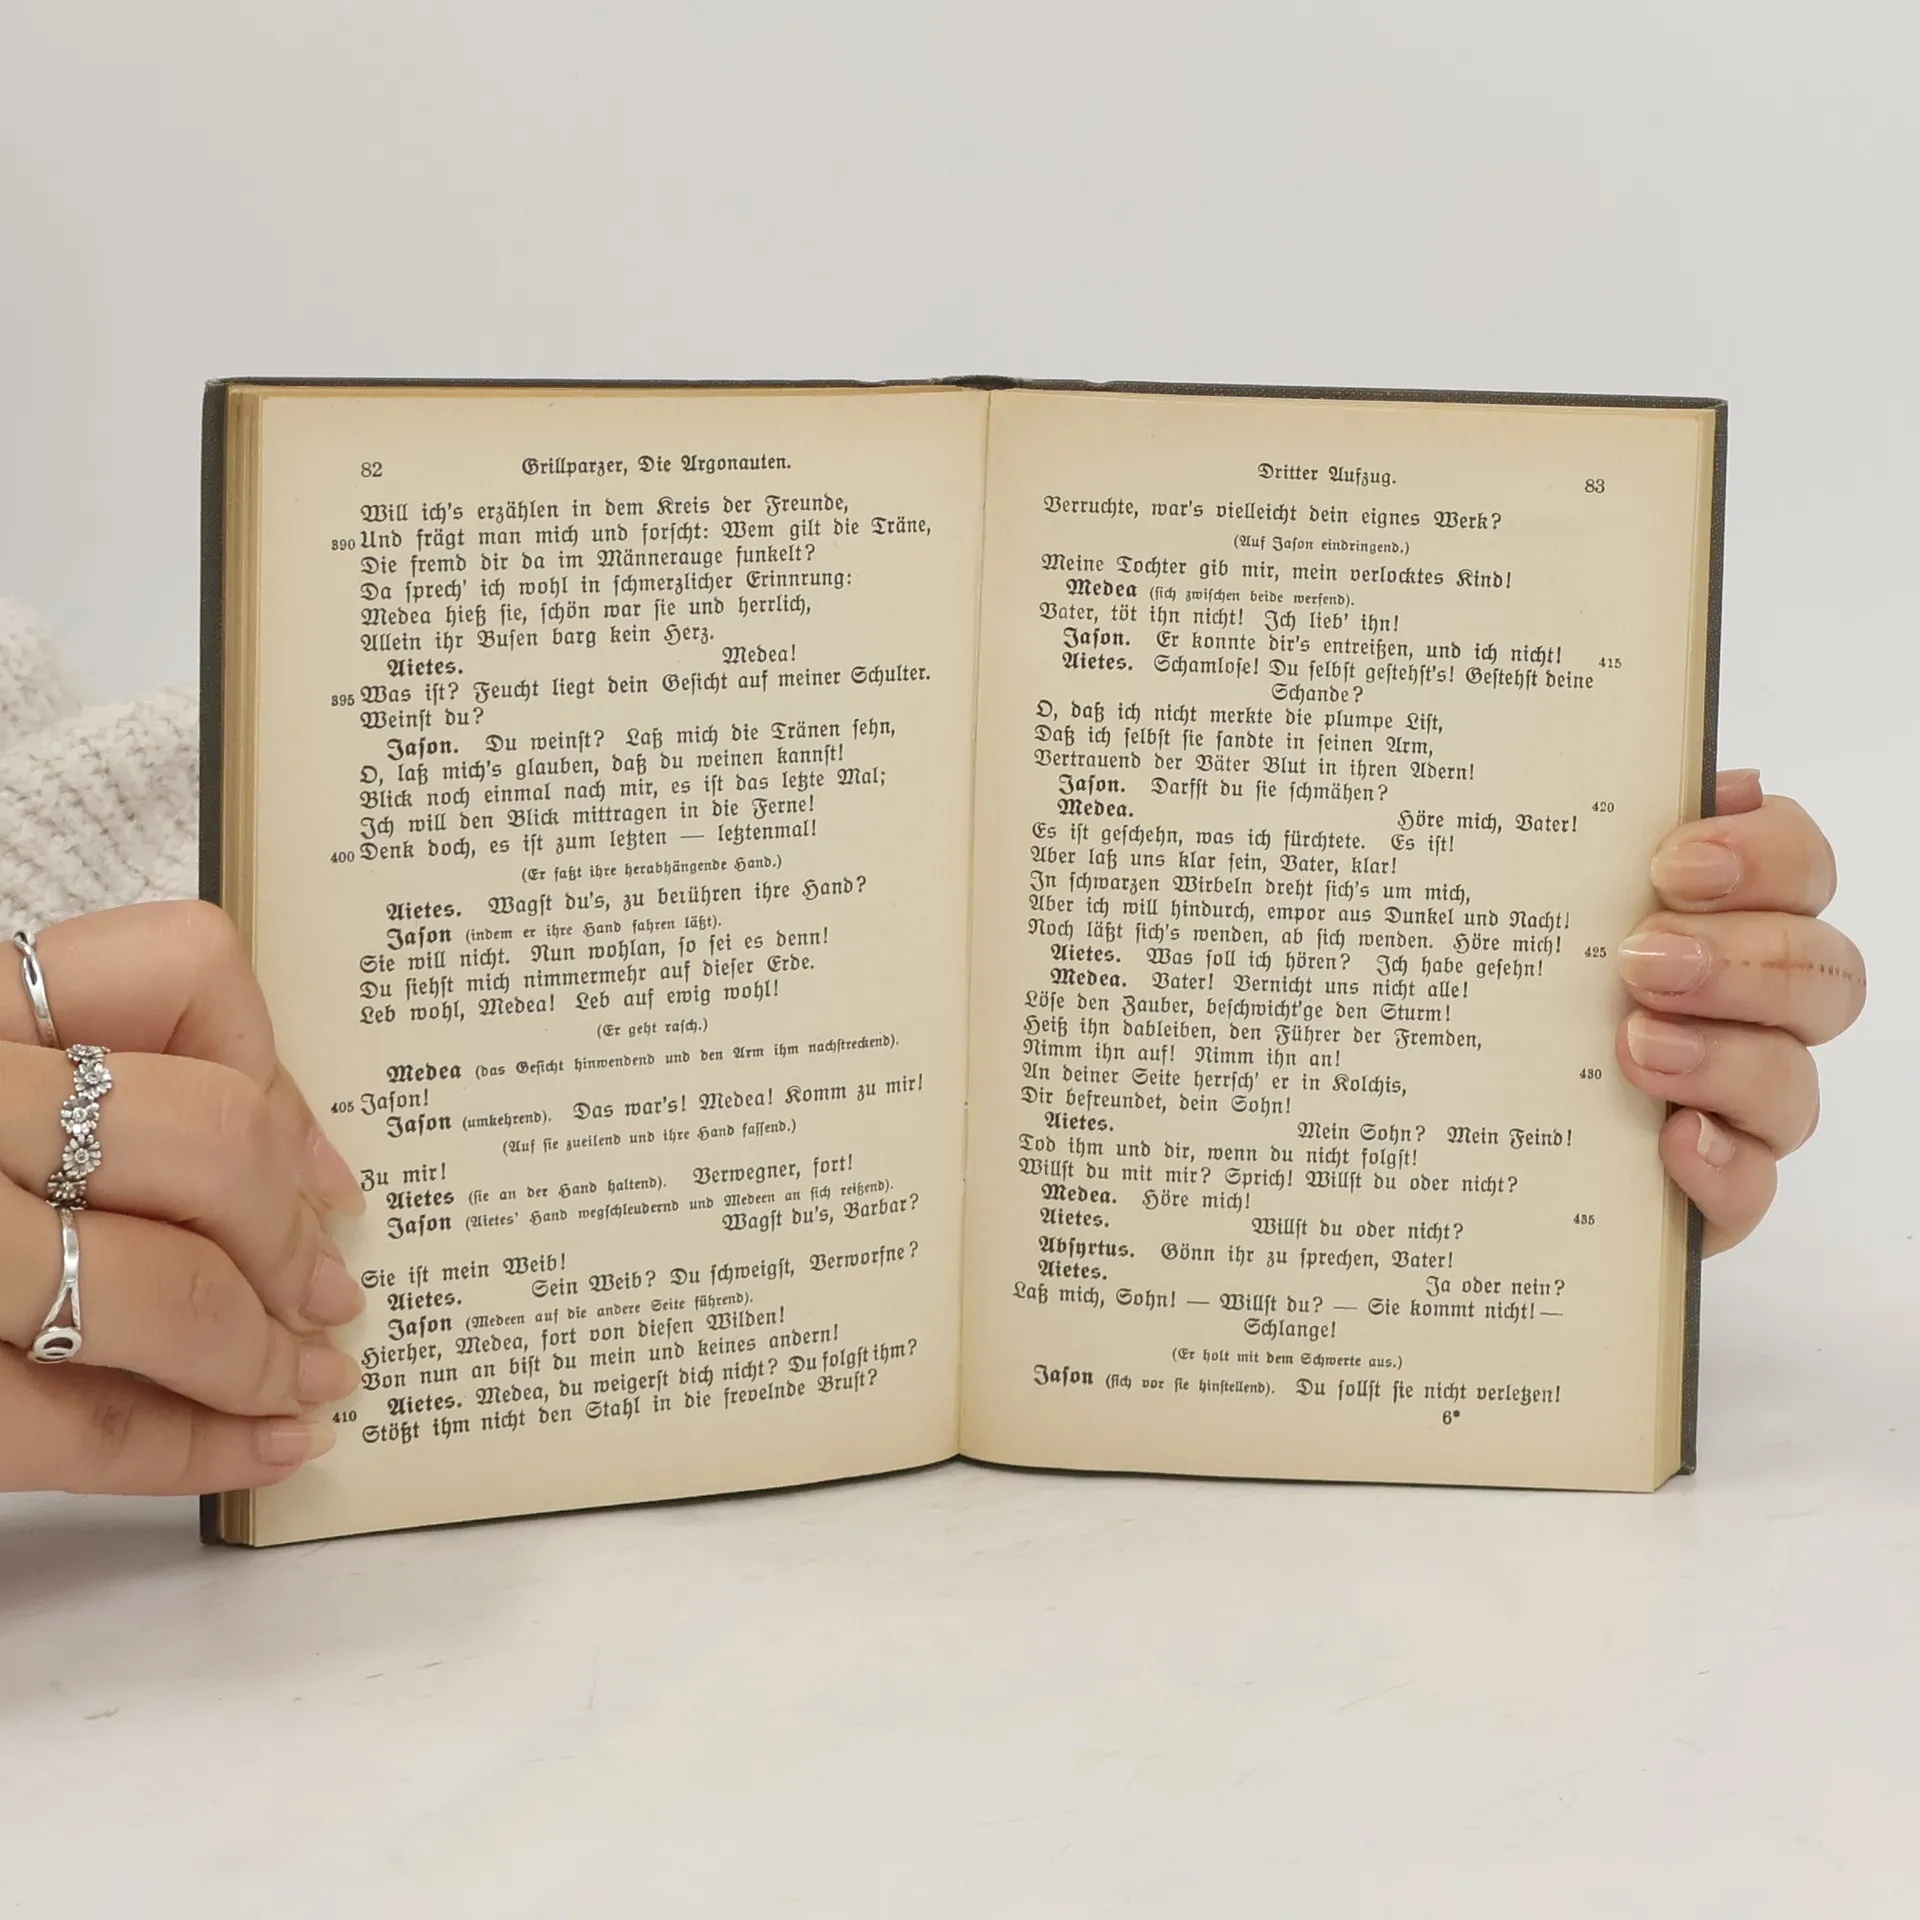 82 Grillparzer, Die Argonauten.
Will ich's erzählen in dem Kreis der Freunde,
890 Und frägt man mich und forſcht: Wem gilt die Träne,
Die fremd dir da im Männerauge funkelt?
Da ſprech' ich wohl in ſchmerzlicher Erinnrung:
Medea hieß ſie, ſchön war ſie und herrlich,
Allein ihr Buſen barg kein Herz.
Aietes. Medea!
895 Was iſt? Feucht liegt dein Geſicht auf meiner Schulter.
Weinſt du?
Jaſon. Du weinſt? Laß mich die Tränen ſehn,
O, laß mich's glauben, daß du weinen kannſt!
Blick noch einmal nach mir, es iſt das letzte Mal;
Ich will den Blick mittragen in die Ferne!
400 Denk doch, es iſt zum letzten — letztenmal!
(Er faßt ihre herabhängende Hand.)
Aietes. Wagſt du's, zu berühren ihre Hand?
Jaſon (indem er ihre Hand fahren läßt).
Sie will nicht. Nun wohlan, ſo ſei es denn!
Du ſiehſt mich nimmermehr auf dieſer Erde.
Leb wohl, Medea! Leb auf ewig wohl!
(Er geht raſch.)
Medea (das Geſicht hinwendend und den Arm ihm nachſtreckend).
405 Jaſon!
Jaſon (umkehrend). Das war's! Medea! Komm zu mir!
(Auf ſie zueilend und ihre Hand faſſend.)
Zu mir!
Aietes (ſie an der Hand haltend). Verwegner, fort!
Jaſon (Aietes' Hand wegſchleudernd und Medeen an ſich reißend).
Wagſt du's, Barbar?
Sie iſt mein Weib!
Aietes. Sein Weib? Du ſchweigſt, Verworfne?
Jaſon (Medeen auf die andere Seite führend).
Hierher, Medea, fort von dieſen Wilden!
Von nun an biſt du mein und keines andern!
410 Aietes. Medea, du weigerſt dich nicht? Du folgſt ihm?
Stößt ihm nicht den Stahl in die frevelnde Bruſt?
Dritter Aufzug. 83
Verruchte, war's vielleicht dein eignes Werk?
(Auf Jaſon eindringend.)
Meine Tochter gib mir, mein verlocktes Kind!
Medea (ſich zwiſchen beide werfend).
Vater, töt ihn nicht! Ich lieb' ihn!
Jaſon. Er konnte dir's entreißen, und ich nicht! 415
Aietes. Schamloſe! Du ſelbſt geſtehſt's! Geſtehſt deine
Schande?
O, daß ich nicht merkte die plumpe Liſt,
Daß ich ſelbſt ſie ſandte in ſeinen Arm,
Vertrauend der Väter Blut in ihren Adern!
Jaſon. Darfſt du ſie ſchmähen?
Medea. Höre mich, Vater! 420
Es iſt geſchehn, was ich fürchtete. Es iſt!
Aber laß uns klar ſein, Vater, klar!
In ſchwarzen Wirbeln dreht ſich's um mich,
Aber ich will hindurch, empor aus Dunkel und Nacht!
Noch läßt ſich's wenden, ab ſich wenden. Höre mich! 425
Aietes. Was ſoll ich hören? Ich habe geſehn!
Medea. Vater! Vernicht uns nicht alle!
Löſe den Zauber, beſchwicht'ge den Sturm!
Heiß ihn dableiben, den Führer der Fremden,
Nimm ihn auf! Nimm ihn an!
An deiner Seite herrſch' er in Kolchis, 430
Dir befreundet, dein Sohn!
Aietes. Mein Sohn? Mein Feind!
Tod ihm und dir, wenn du nicht folgſt!
Willſt du mit mir? Sprich! Willſt du oder nicht?
Medea. Höre mich!
Aietes. Willſt du oder nicht? 435
Abſyrtus. Gönn ihr zu ſprechen, Vater!
Aietes. Ja oder nein?
Laß mich, Sohn! — Willſt du? — Sie kommt nicht! —
Schlange!
(Er holt mit dem Schwerte aus.)
Jaſon (ſich vor ſie hinſtellend). Du ſollſt ſie nicht verletzen!
6*